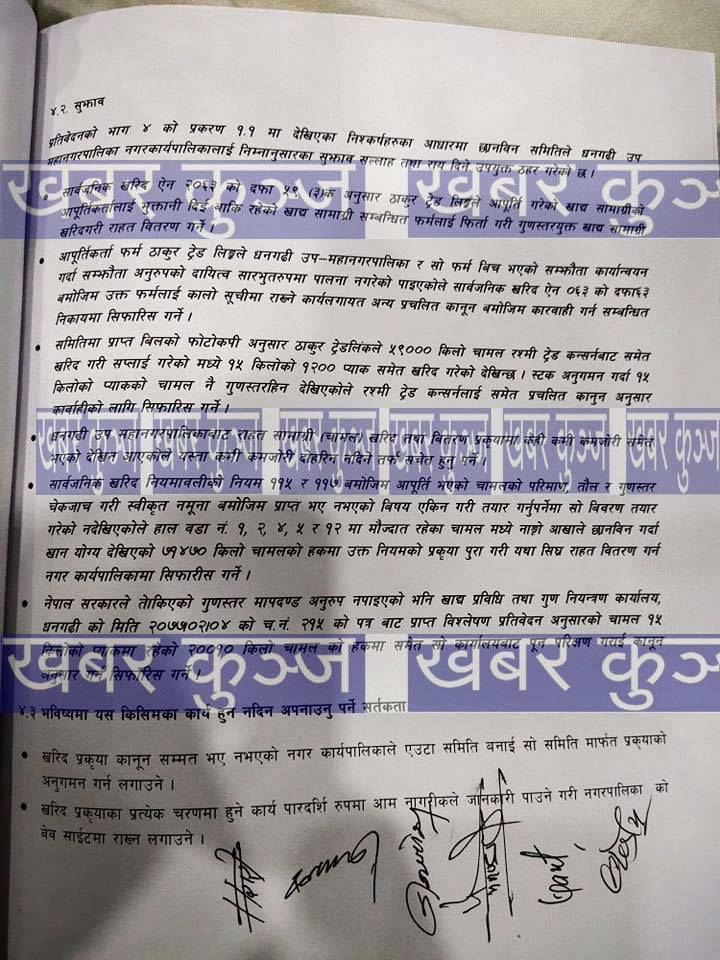 ४.२. सुझाव
प्रतिवेदनको भाग ४ को प्रकरण १.१ मा देखिएका निश्कर्षहरुका आधारमा छानविन समितिले धनगढी उप
महानगरपालिका नगरकार्यपालिकालाई निम्नानुसारका सुझाव सल्लाह तथा राय दिने उपयुक्त ठहर गरेको छ ।
• सार्वजनिक खरिद ऐन २०६३ को दफा ५९ (३)क अनुसार ठाकुर ट्रेड लिङ्कले आपूर्ति गरेको खाद्य सामाग्री
आपूर्तिकर्तालाई भुक्तानी दिई बाकि रहेको खाद्य सामाग्री सम्बन्धित फर्मलाई फिर्ता गरी गुणस्तरयुक्त खाद्य सामाग्री
खरिदगरी राहत वितरण गर्ने ।
• आपूर्तिकर्ता फर्म ठाकुर ट्रेड लिङ्कले धनगढी उप-महानगरपालिका र सो फर्म बिच भएको सम्झौता कार्यान्वयन
गर्दा सम्झौता अनुरुपको दायित्व सारभुतरुपमा पालना नगरेको पाइएकोले सार्वजनिक खरिद ऐन ०६३ को दफा६३
बमोजिम उक्त फर्मलाई कालो सूचीमा राख्ने कार्यलगायत अन्य प्रचलित कानून बमोजिम कारबाही गर्न सम्बन्धित
निकायमा सिफारिस गर्ने ।
• समितिमा प्राप्त बिलको फोटोकपी अनुसार ठाकुर ट्रेडलिंकले ५९००० किलो चामल रश्मी ट्रेड कन्सर्नबाट समेत
खरिद गरी सप्लाई गरेको मध्ये १५ किलोको १२०० प्याक समेत खरिद गरेको देखिन्छ । स्टक अनुगमन गर्दा १५
किलोको प्याकको चामल नै गुणस्तरहिन देखिएकोले रश्मी ट्रेड कन्सर्नलाई समेत प्रचलित कानुन अनुसार
कार्वाहीको लागि सिफारिस गर्ने ।
• धनगढी उप महानगरपालिकाबाट राहत सामाग्री (चामल) खरिद तथा बितरण प्रकृयामा केही कमी कमजोरी समेत
भएको देखिन आएकोले यस्ता कमी कमजोरी दोहरिन नदिने तर्फ सचेत हुनु पर्ने ।
• सार्वजनिक खरिद नियमावलीको नियम ११५ र ११७ बमोजिम आपूर्ति भएको चामलको परिमाण, तौल र गुणस्तर
चेकजाच गरी स्वीकृत नमूना बमोजिम प्राप्त भए नभएको बिषय एकिन गरी तयार गर्नुपर्नेमा सो बिवरण तयार
गरेको नदेखिएकोले हाल वडा नं. १, २, ४, ५ र १२ मा मौज्दात रहेका चामल मध्ये नाङ्गो आखाले छानविन गर्दा
खान योग्य देखिएको ७१४७० किलो चामलको हकमा उक्त नियमको प्रकृया पुरा गरी यथा सिघ्र राहत वितरण गर्न
नगर कार्यपालिकामा सिफारीस गर्ने ।
• नेपाल सरकारले तोकिएको गुणस्तर मापदण्ड अनुरुप नपाइएको भनि खाद्य प्रविधि तथा गुण नियन्त्रण कार्यालय,
धनगढी को मिति २०७७।०२।०४ को च.नं. २१५ को पत्र बाट प्राप्त विश्लेषण प्रतिवेदन अनुसारको चामल १५
किलोको प्याकमा रहेको २००१० किलो चामल को हकमा समेत सो कार्यालयबाट पून परिक्षण गराई कानून
अनुसार गर्न सिफारिस गर्ने ।
४.३ भविष्यमा यस किसिमका कार्य हुन नदिन अपनाउनु पर्ने सर्तकता
• खरिद प्रकृया कानून सम्मत भए नभएको नगर कार्यपालिकाले एउटा समिति बनाई सो समिति मार्फत प्रकृयाको
अनुगमन गर्न लगाउने ।
• खरिद प्रकृयाका प्रत्येक चरणमा हुने कार्य पारदर्शि रुपमा आम नागरीकले जानकारी पाउने गरी नगरपालिका को
वेव साईटमा राख्न लगाउने ।
खबर कुञ्ज खबर कुञ्ज
खबर कुञ्ज खबर कुञ्ज खबर कुञ्ज खबर कुञ्ज
खबर कुञ्ज खबर कुञ्ज